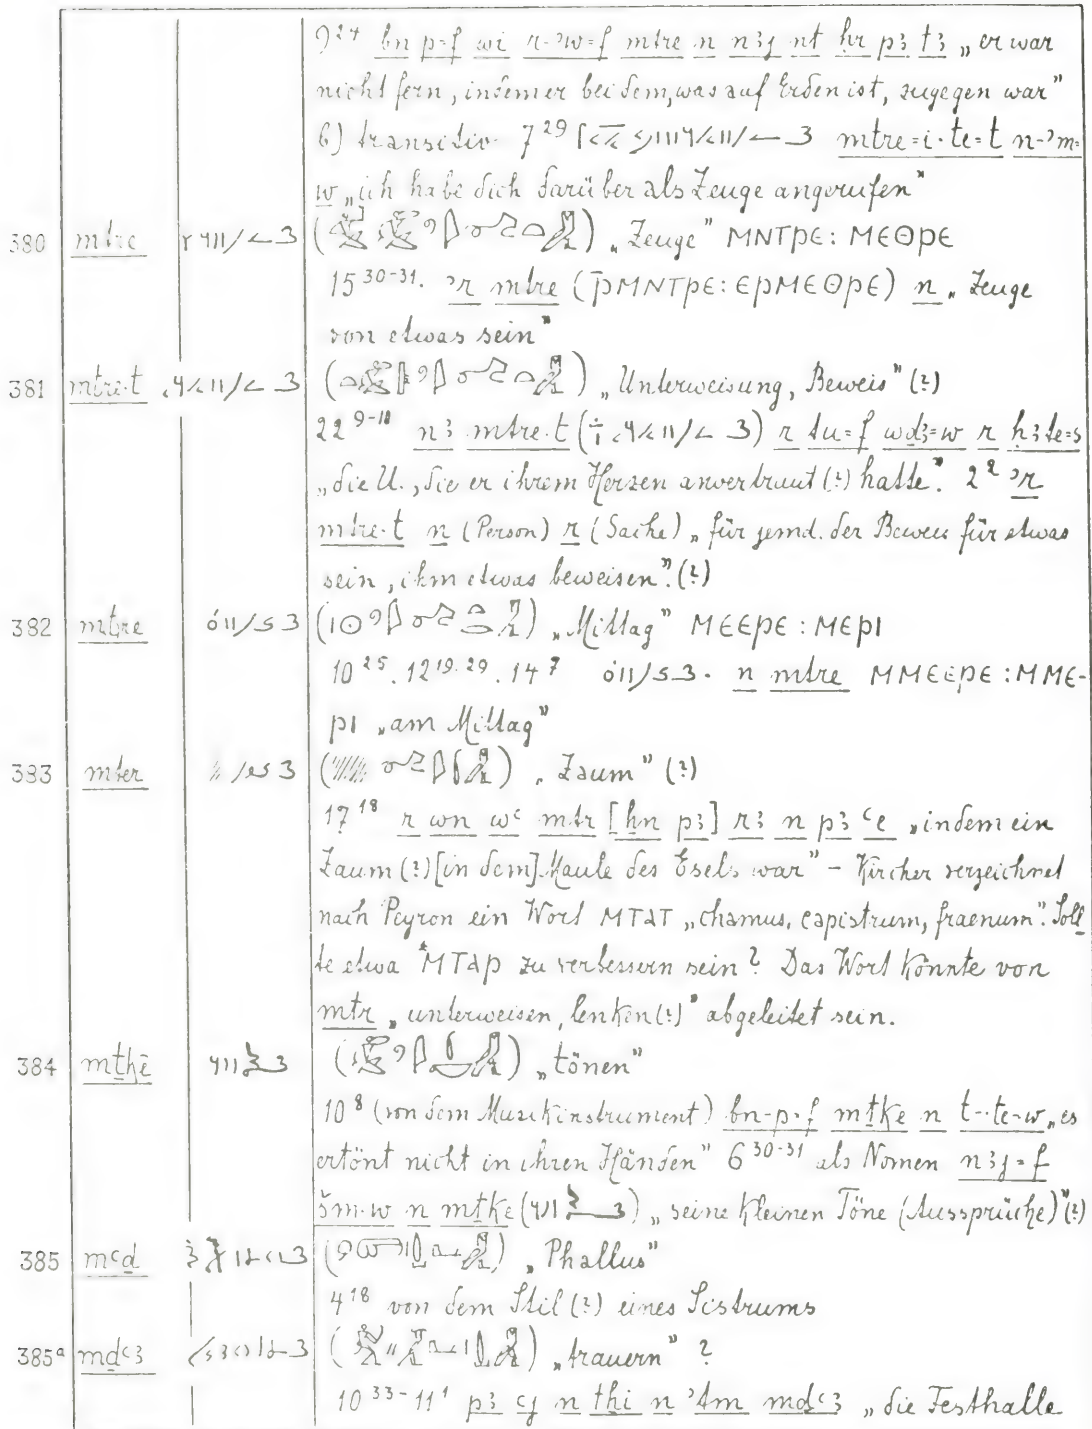 9²⁴ bn p=f wi r-ʾw=f mtre n n3j nt ḥr p3 t3 „er war
nicht fern, indem er bei dem, was auf Erden ist, zugegen war"
6) transitiv 7²⁹ mtre=i-te=t n-ʾm=
w „ich habe dich darüber als Zeuge angerufen"
380 mtre „Zeuge" ⲙⲛⲧⲣⲉ: ⲙⲉⲑⲣⲉ
15³⁰⁻³¹. ʾr mtre (ⲣ̄ⲙⲛⲧⲣⲉ: ⲉⲣⲙⲉⲑⲣⲉ) n „Zeuge
von etwas sein"
381 mtre·t „Unterweisung, Beweis" (?)
22⁹⁻¹⁰ n3 mtre·t r tu=f wḏ3=w r ḥ3te=s
„die U., die er ihrem Herzen anvertraut (?) hatte". 2² ʾr
mtre·t n (Person) r (Sache) „für jemd. der Beweis für etwas
sein, ihm etwas beweisen". (?)
382 mtre „Mittag" ⲙⲉⲉⲣⲉ : ⲙⲉⲣⲓ
10²⁵. 12¹⁹·²⁹. 14⁷ n mtre ⲙⲙⲉⲉⲣⲉ : ⲙⲙⲉ-
ⲣⲓ „am Mittag"
383 mter „Zaum" (?)
17¹⁸ r wn wꜥ mtr [ḥn p3] r3 n p3 ꜥe „indem ein
Zaum (?) [in dem] Maule des Esels war" – Kircher verzeichnet
nach Peyron ein Wort ⲙⲧⲁⲧ „chamus, capistrum, fraenum". Soll
te etwa *ⲙⲧⲁⲣ zu verbessern sein? Das Wort könnte von
mtr „unterweisen, lenken (?)" abgeleitet sein.
384 mtḳe „tönen"
10⁸ (von dem Musikinstrument) bn-p=f mtke n t-te-w „es
ertönt nicht in ihren Händen" 6³⁰⁻³¹ als Nomen n3j=f
šm·w n mtke „seine kleinen Töne (Aussprüche)" (?)
385 mꜥd „Phallus"
4¹⁸ von dem Stil (?) eines Sistrums
385ᵃ mdꜥ3 „trauern" ?
10³³⁻11¹ p3 ꜥj n thi n ʾtm mdꜥ3 „die Festhalle